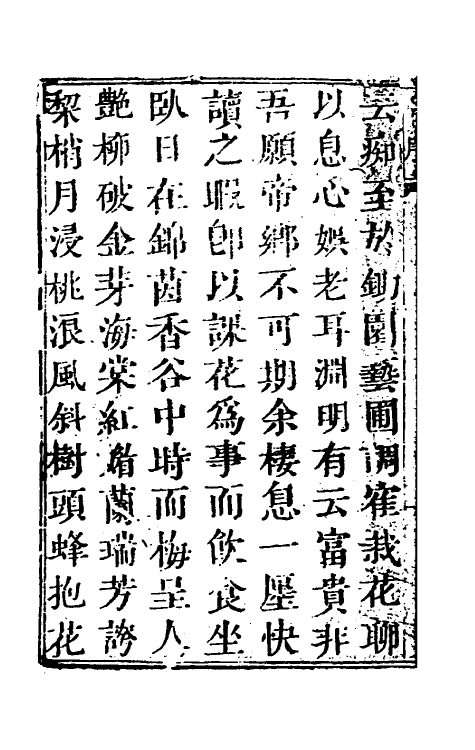 云痴至於鋤園藝圃調雀栽花聊
以息心娛老耳淵明有云富貴非
吾願帝鄉不可期余棲息一廛快
讀之暇卽以課花爲事而飲食坐
臥日在錦茵香谷中時而梅呈人
艷柳破金芽海棠紅媚蘭瑞芳誇
梨梢月浸桃浪風斜樹頭蜂抱花